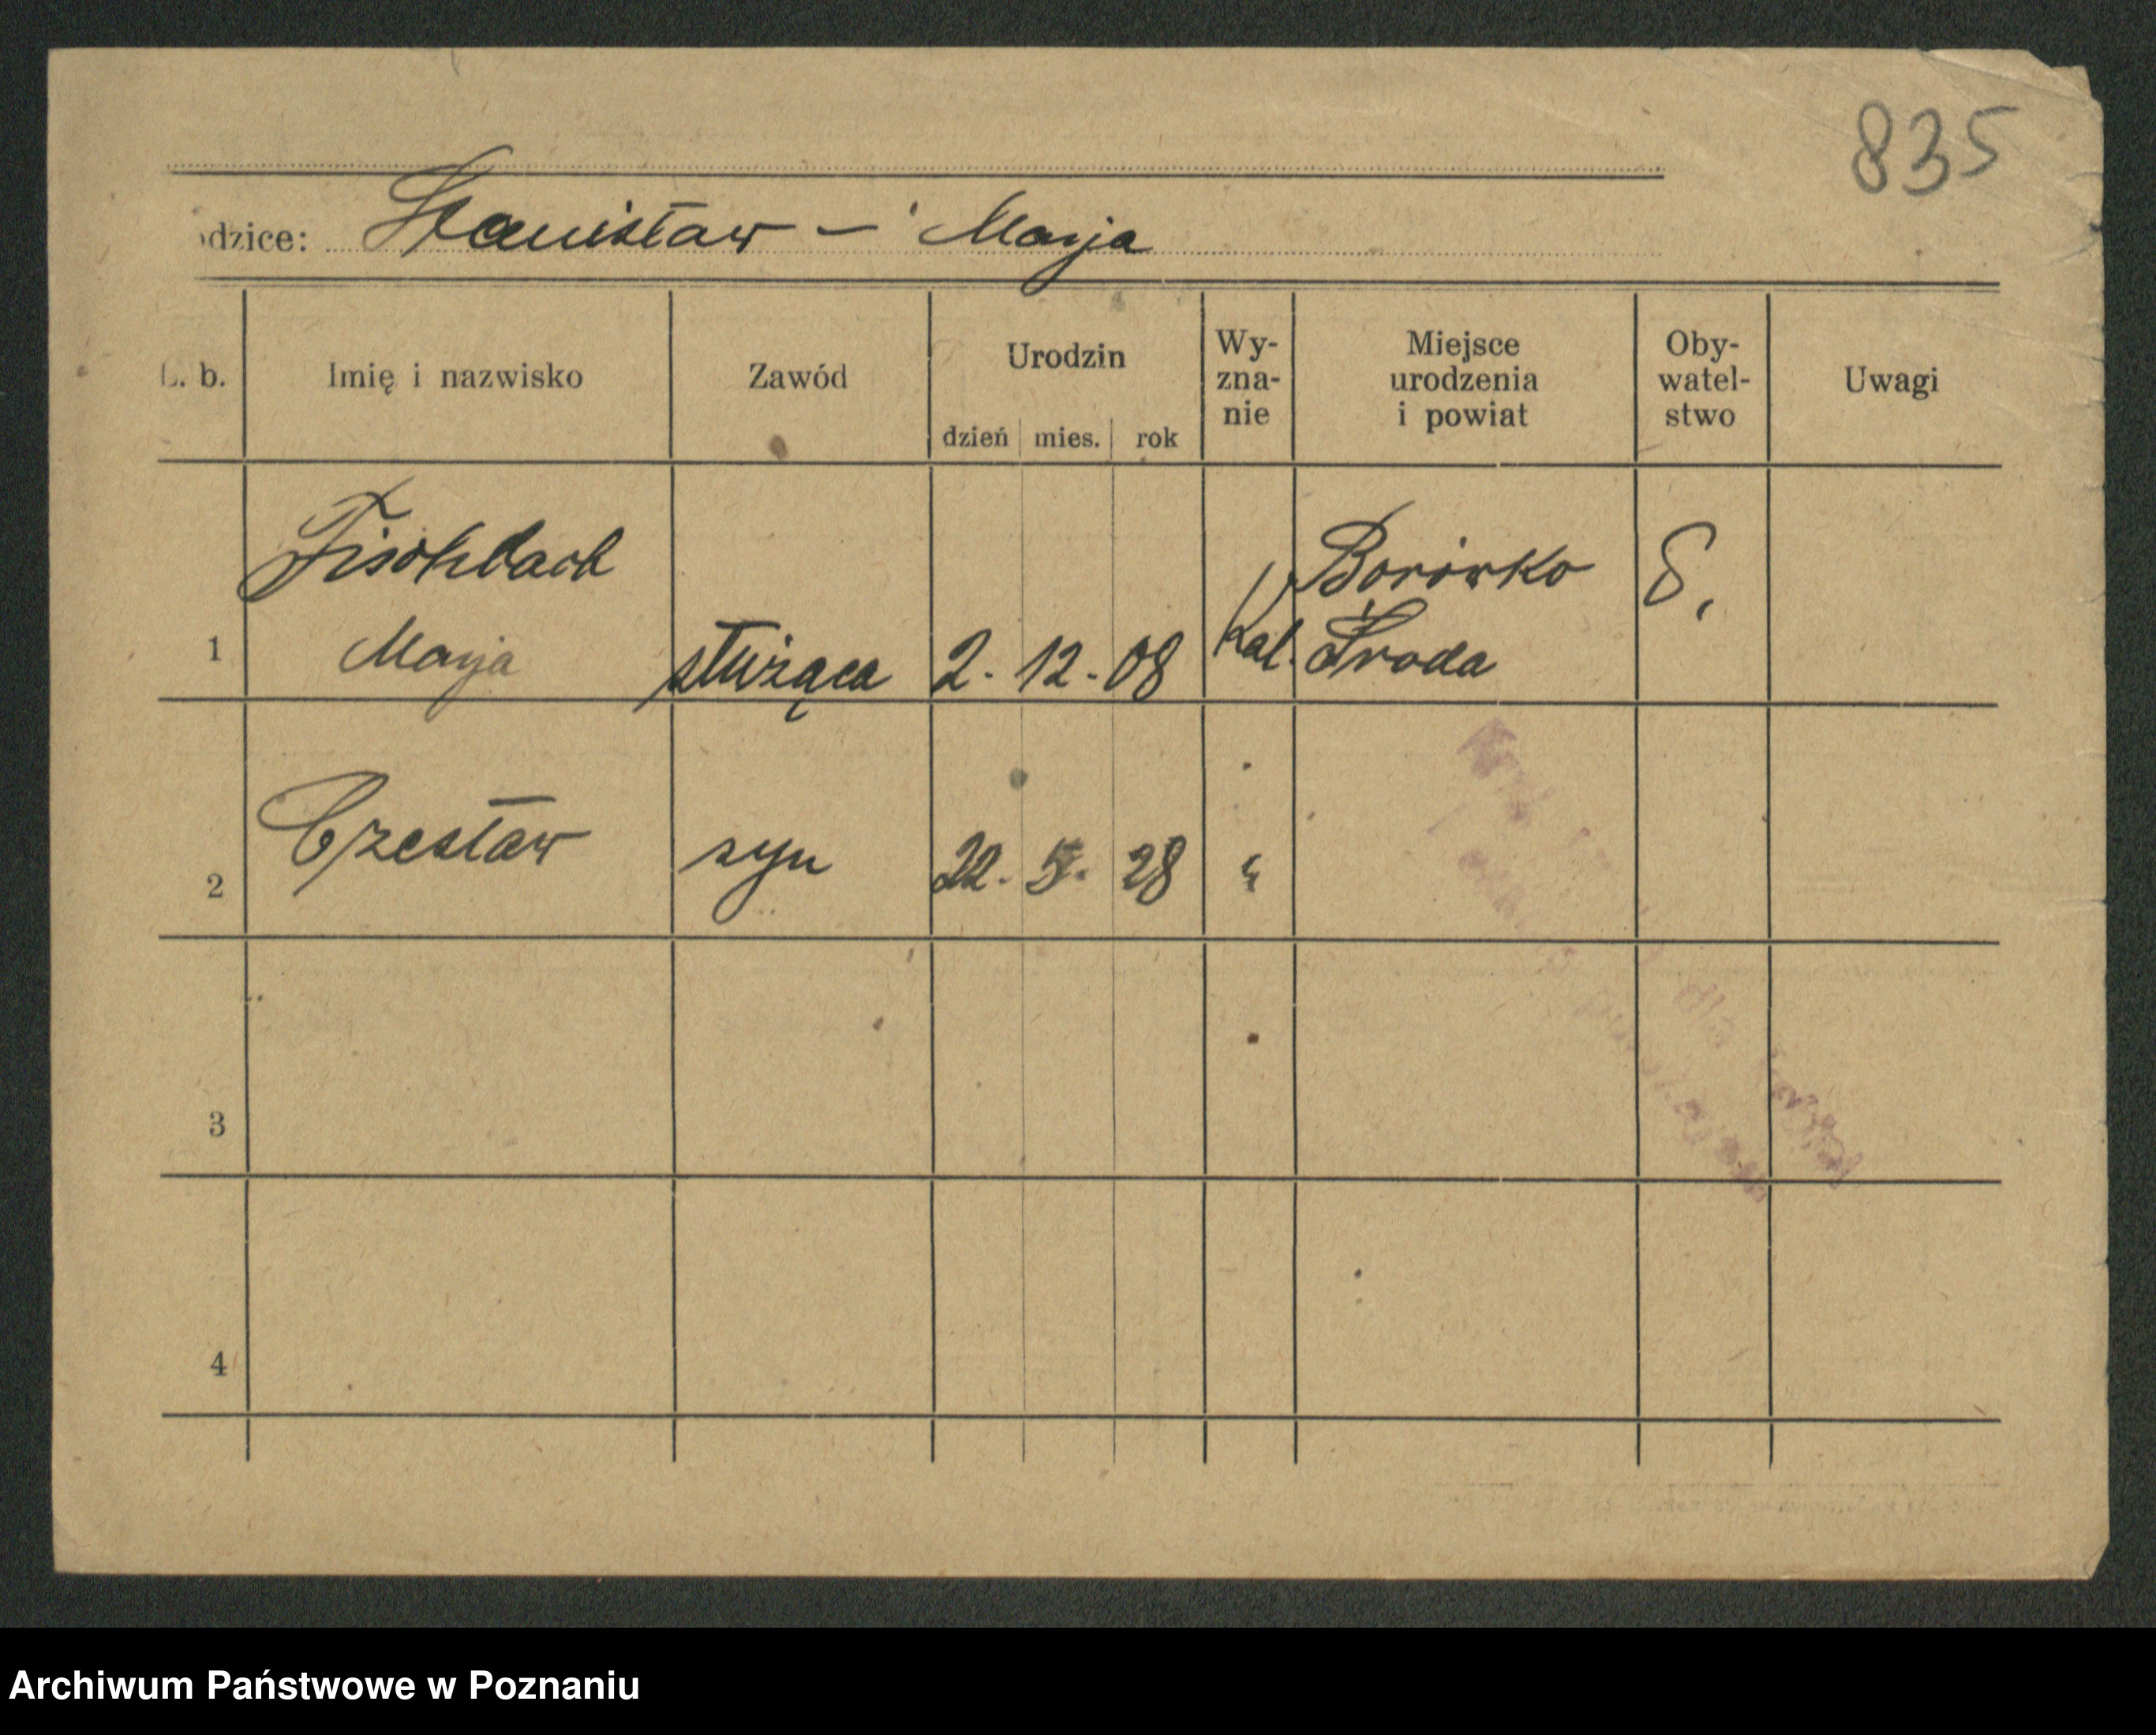 835
odzice: Stanisław - Marja
L. b. Imię i nazwisko Zawód Urodzin dzień mies. rok Wy-zna-nie Miejsce urodzenia i powiat Oby-watel-stwo Uwagi
Fischbach Borówko S.
1 Marja służąca 2. 12. 08 kat. Środa
2 Czesław syn 22. 5. 28 "
3
4
Archiwum Państwowe w Poznaniu